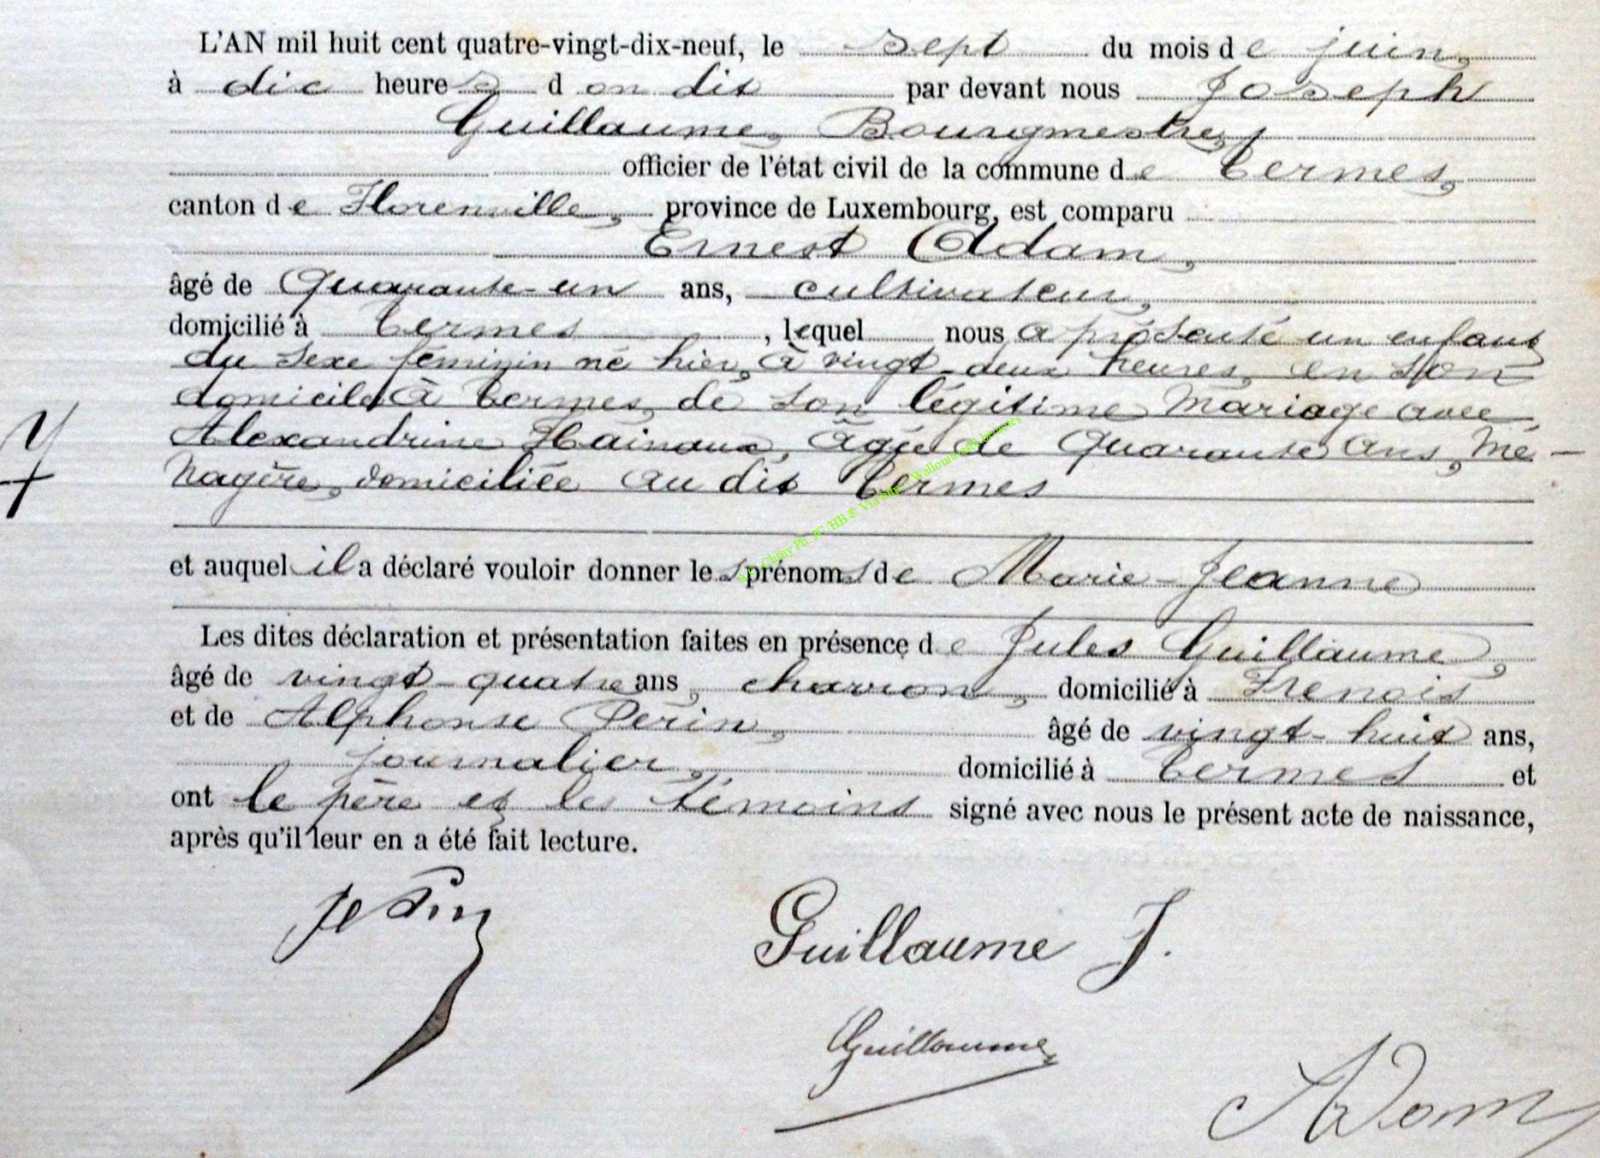 L'AN mil huit cent quatre-vingt-dix-neuf, le sept du mois de juin,
à dix heures d on dit par devant nous Joseph
Guillaume, Bourgmestre,
officier de l'état civil de la commune de Termes,
canton de Florenville, province de Luxembourg, est comparu
Ernest Adam,
âgé de Quarante-un ans, cultivateur,
domicilié à Termes, lequel nous a présenté un enfant
du sexe féminin né hier, à vingt-deux heures, en son
domicile à Termes, de son légitime Mariage avec
Alexandrine Hainaux, âgée de Quarante ans, mé-
nagère, domiciliée au dit Termes
et auquel il a déclaré vouloir donner les prénoms de Marie-Jeanne
Les dites déclaration et présentation faites en présence de Jules Guillaume,
âgé de vingt-quatre ans, charron, domicilié à Frenois
et de Alphonse Perin, âgé de vingt-huit ans,
journalier, domicilié à Termes et
ont le père et les témoins signé avec nous le présent acte de naissance,
après qu'il leur en a été fait lecture.
Guillaume J.
Guillaume
Adam